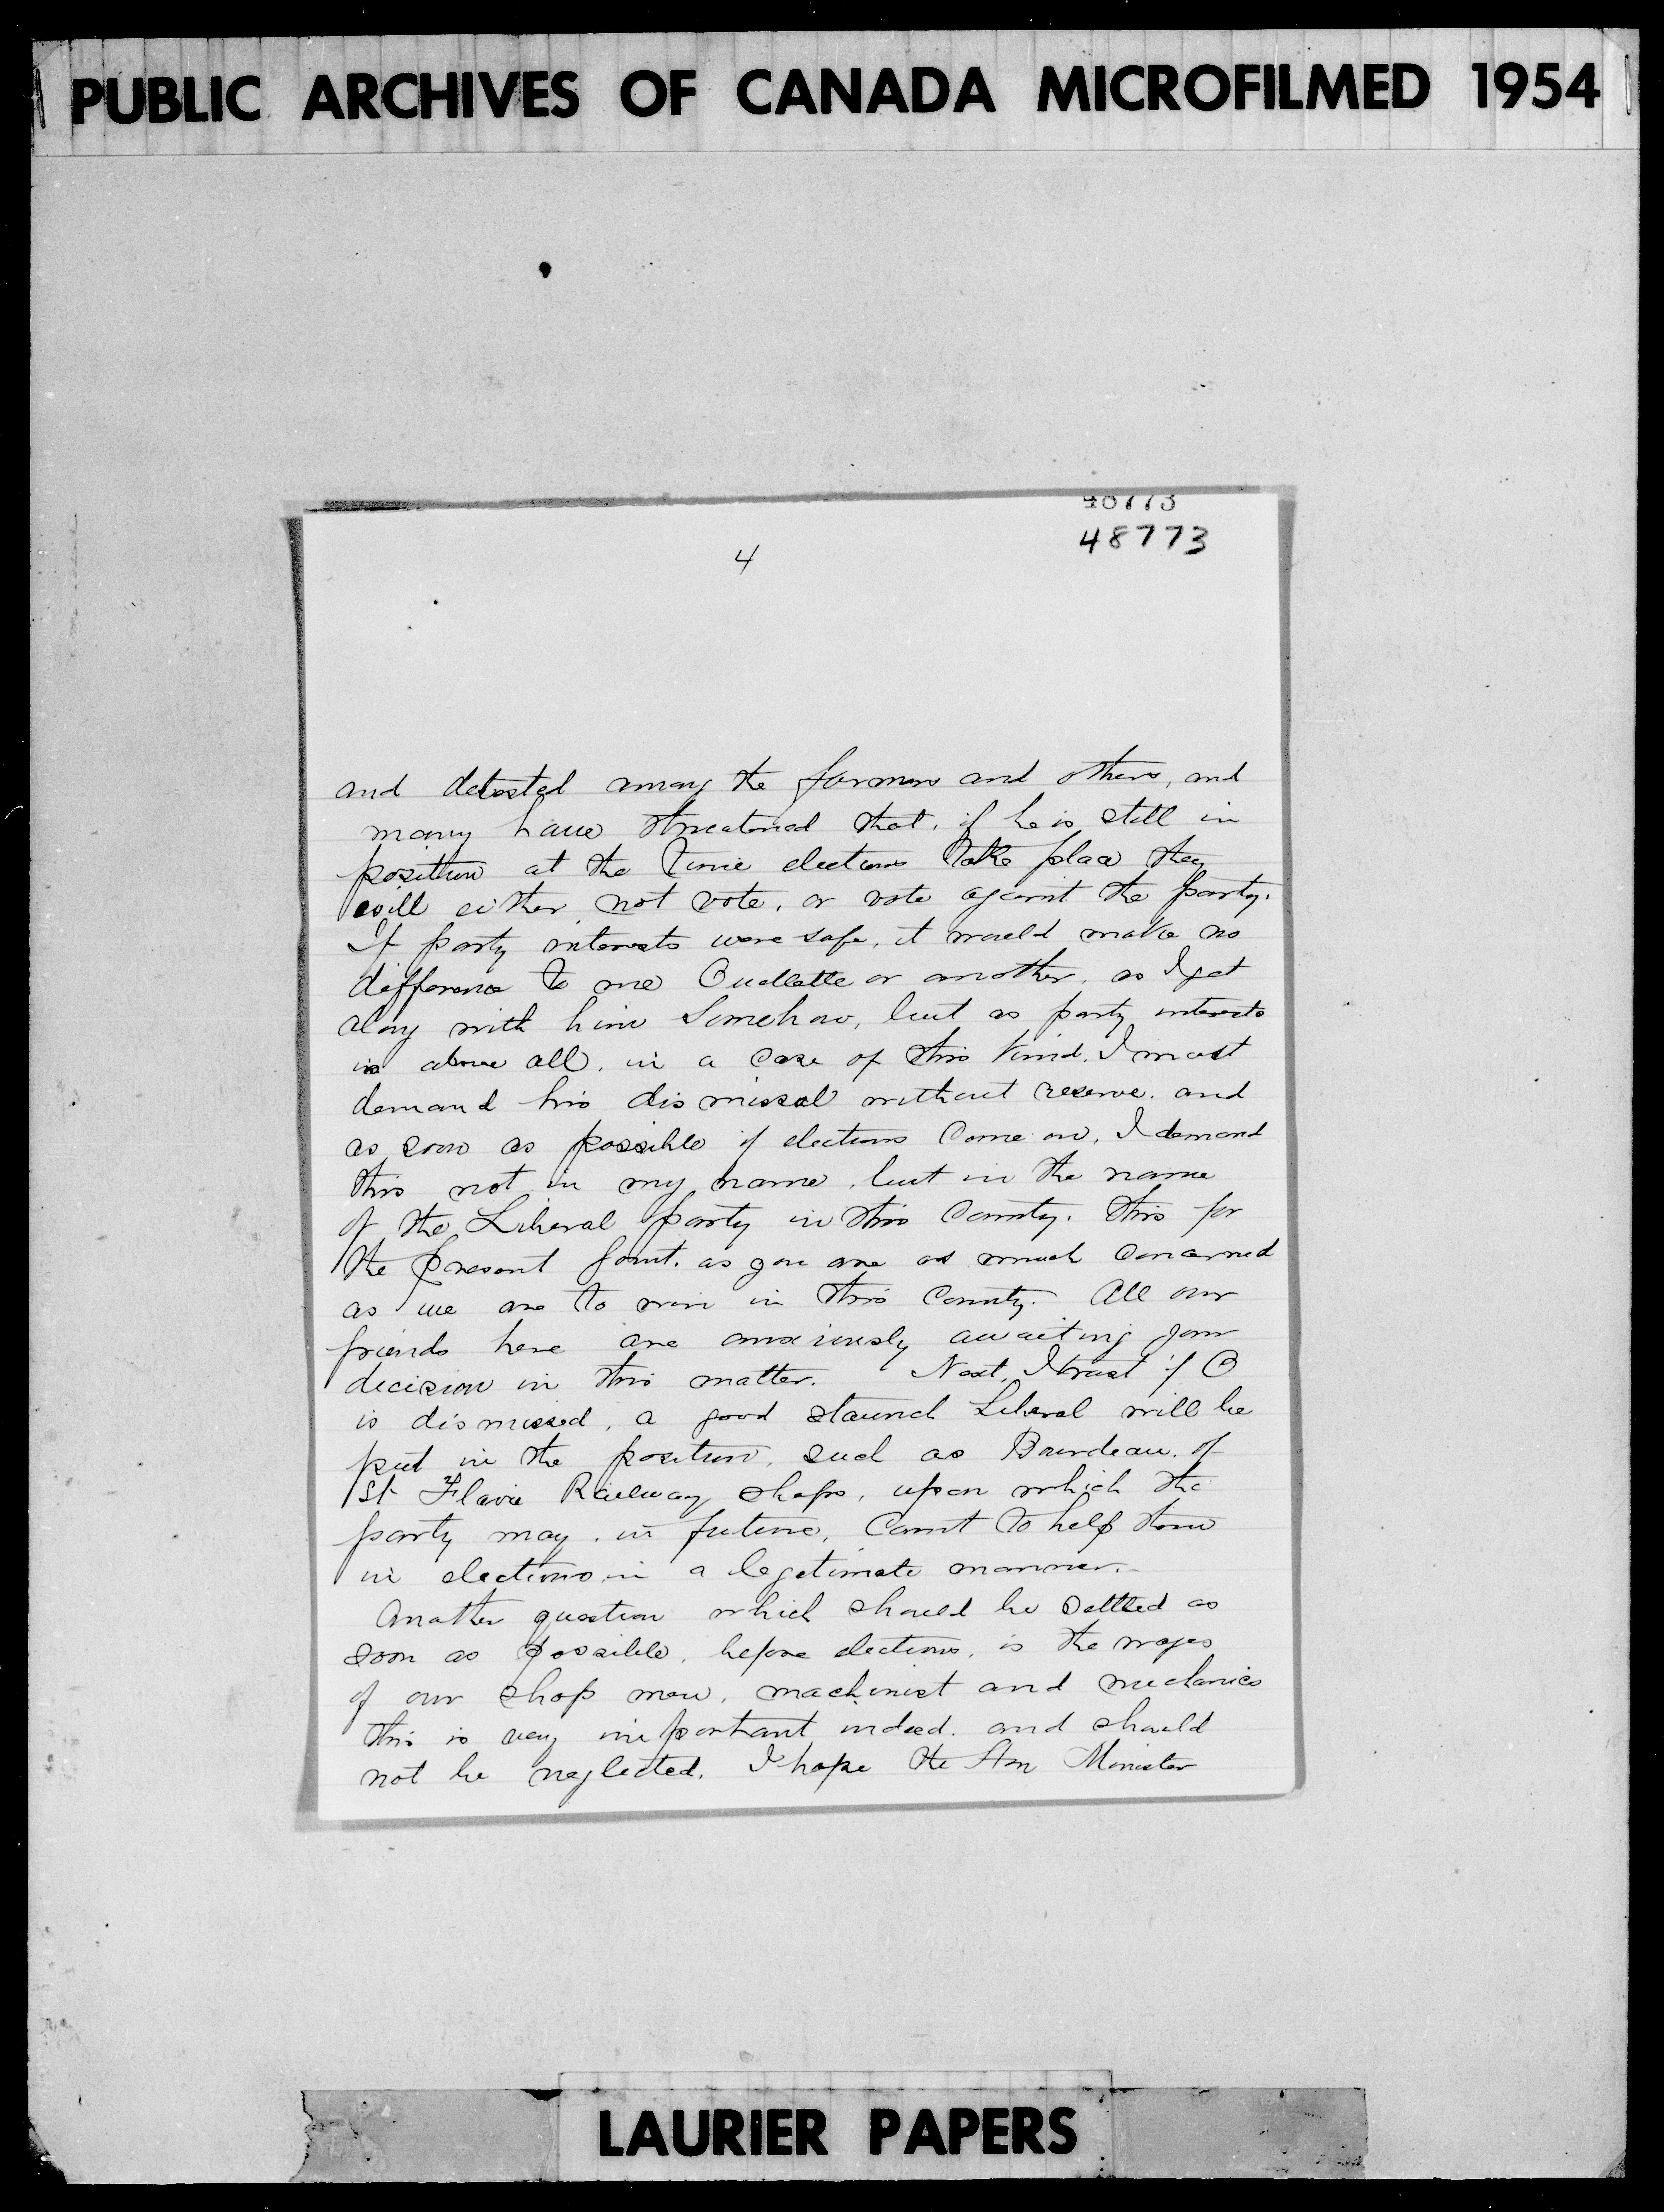 PUBLIC ARCHIVES OF CANADA MICROFILMED 1954
48773
48773
4
and detested among the farmers and others, and
many have threatened that, if he is still in
position at the time elections take place they
will either not vote, or vote against the party.
If party interests were safe, it would make no
difference to me Ouellette or another, as I get
along with him somehow, but as party interests
is above all, in a case of this kind, I must
demand his dismissal without reserve, and
as soon as possible if elections come on, I demand
this not in my name, but in the name
of the Liberal party in this County. This for
the present point, as you are as much concerned
as we are to win in this County. All our
friends here are anxiously awaiting your
decision in this matter. Next, I trust if O
is dismissed, a good staunch Liberal will be
put in the position, such as Bourdeau, of
St Flavie Railway shops, upon which the
party may, in future, count to help them
in elections in a legetimate manner.
Another question which should be settled as
soon as possible, before elections, is the wages
of our shop men, machinist and mechanics
this is very important indeed, and should
not be neglected. I hope the Hon Minister
LAURIER PAPERS